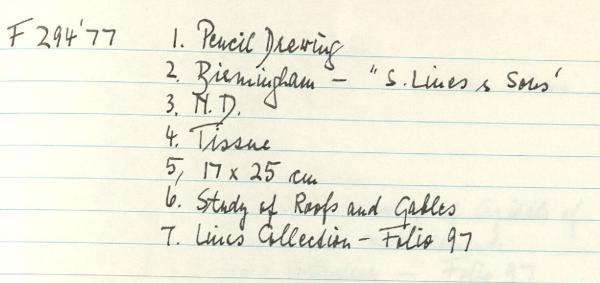 F 294'77 1. Pencil Drawing
2. Birmingham - "S. Lines & Sons'
3. N.D.
4. Tissue
5, 17 x 25 cm
6. Study of Roofs and Gables
7. Lines Collection - Folio 97